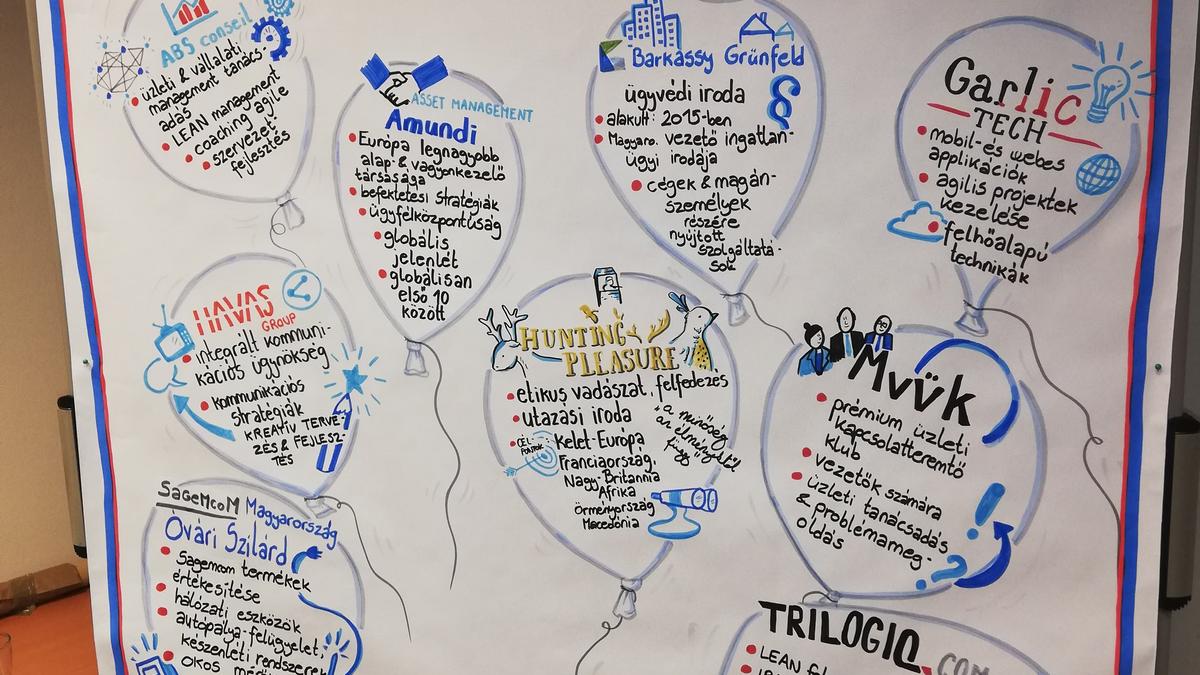 ABS conseil
• üzleti & vállalati
management tanács-
adás
• LEAN management
• coaching agile
• szervezet
fejlesztés
ASSET MANAGEMENT
Amundi
• Európa legnagyobb
alap- & vagyonkezelő
társasága
• befektetési stratégiák
• ügyfélközpontúság
• globális
jelenlét
• globálisan
első 10
között
Barkassy Grünfeld
ügyvédi iroda
§
• alakult: 2015-ben
• Magyaro. vezető ingatlan-
ügyi irodája
• cégek & magán-
személyek
részére
nyújtott
szolgáltatá-
sok
Garlic
TECH
• mobil- és webes
applikációk
• agilis projektek
kezelése
• felhőalapú
technikák
HAVAS
GROUP
• integrált kommuni-
kációs ügynökség
• kommunikációs
stratégiák
KREATÍV TERVE-
ZÉS & FEJLESZ-
TÉS
HUNTING
PLEASURE
• etikus vadászat, felfedezés
• utazási iroda
• CÉL-
PONTOK
Kelet-Európa
Franciaország
Nagy-Britannia
Afrika
Örményország
Macedónia
+ a minőség
az élménytől
függ
Mvük
• prémium üzleti
kapcsolatteremtő
klub
• vezetők számára
• üzleti tanácsadás
& problémameg-
oldás
!
?
SAGEMCOM Magyarország
Óvári Szilárd
• Sagemcom termékek
értékesítése
• hálózati eszközök
• autópálya-felügyelet,
készenléti rendszerek
• okos
TRILOGIQ.COM
• LEAN